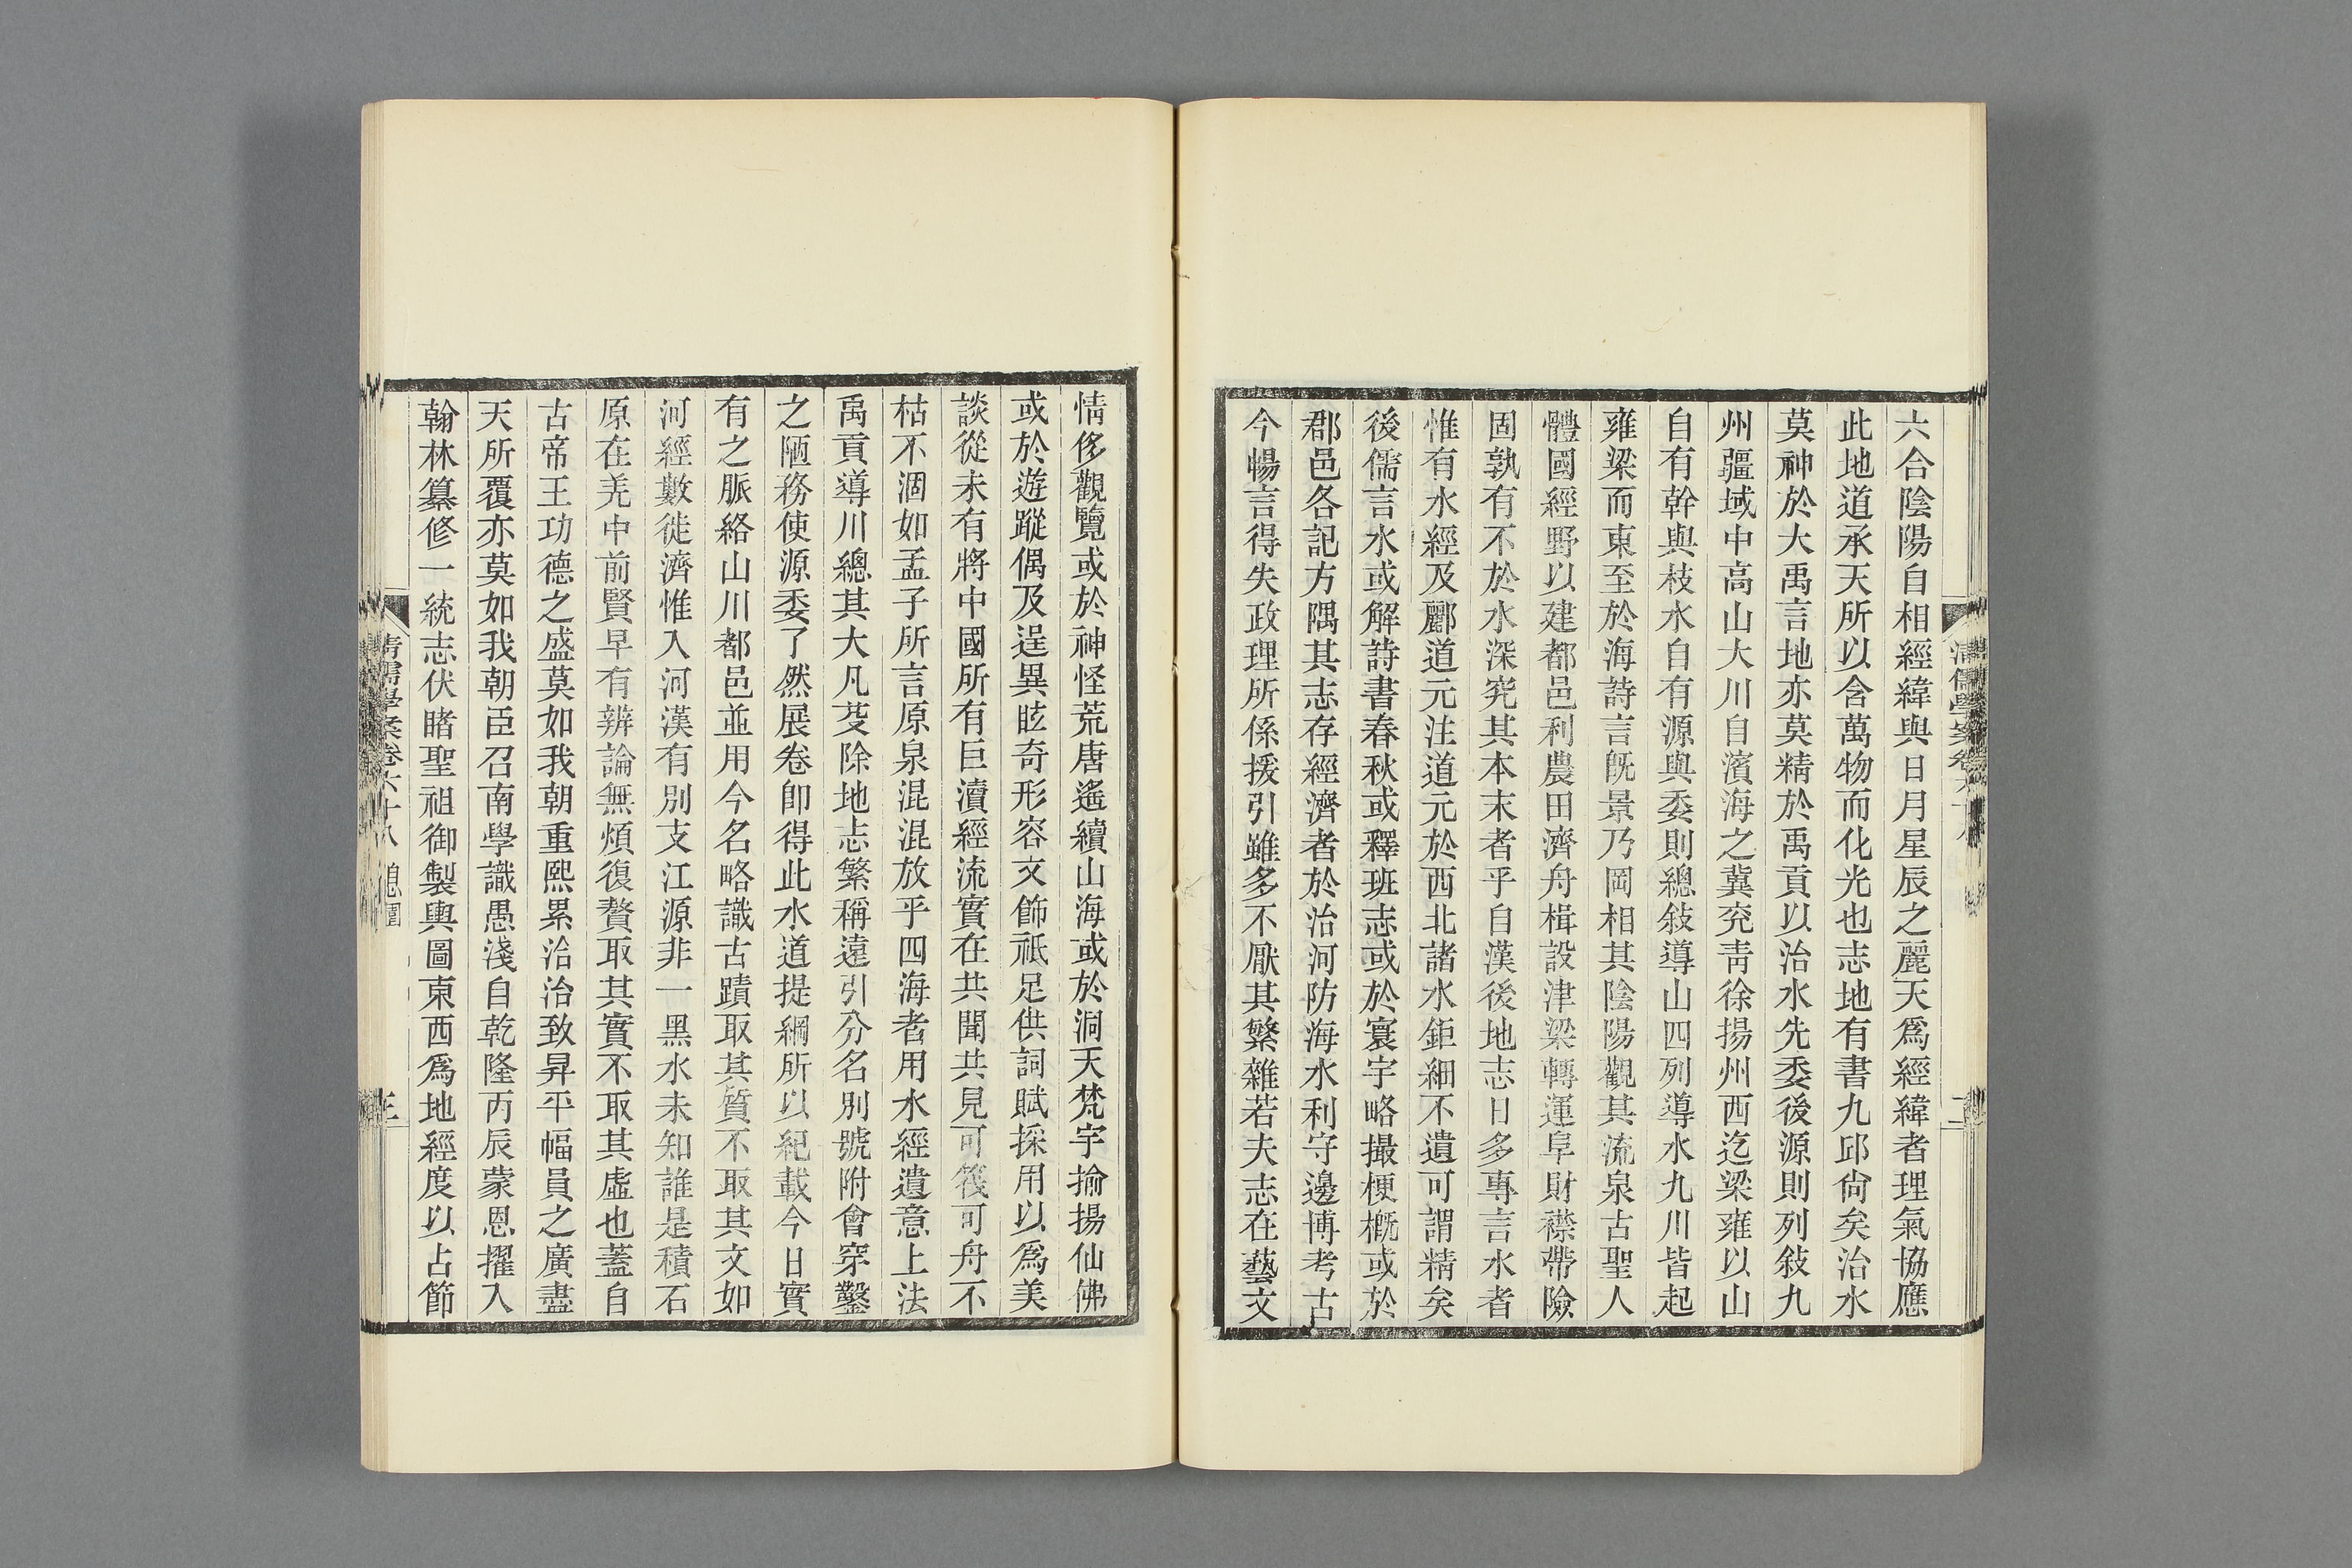 六合陰陽自相經緯與日月星辰之麗天爲經緯者理氣協應
此地道承天所以含萬物而化光也志地有書九邱尙矣治水
莫神於大禹言地亦莫精於禹貢以治水先委後源則列敍九
州疆域中高山大川自濱海之冀兗靑徐揚州西迄梁雍以山
自有幹與枝水自有源與委則總敍導山四列導水九川皆起
雍梁而東至於海詩言旣景乃岡相其陰陽觀其流泉古聖人
體國經野以建都邑利農田濟舟楫設津梁轉運阜財襟帶險
固孰有不於水深究其本末者乎自漢後地志日多專言水者
惟有水經及酈道元注道元於西北諸水鉅細不遺可謂精矣
後儒言水或解詩書春秋或釋班志或於寰宇略撮梗槪或於
郡邑各記方隅其志存經濟者於治河防海水利守邊博考古
今暢言得失政理所係援引雖多不厭其繁雜若夫志在藝文
情侈觀覽或於神怪荒唐遙續山海或於洞天梵宇揄揚仙佛
或於遊蹤偶及逞異眩奇形容文飾祇足供詞賦採用以爲美
談從未有將中國所有巨瀆經流實在共聞共見可筏可舟不
枯不涸如孟子所言原泉混混放乎四海者用水經遺意上法
禹貢導川總其大凡芟除地志繁稱遠引分名別號附會穿鑿
之陋務使源委了然展卷卽得此水道提綱所以紀載今日實
有之脈絡山川都邑並用今名略識古蹟取其質不取其文如
河經數徙濟惟入河漢有別支江源非一黑水未知誰是積石
原在羌中前賢早有辨論無煩復贅取其實不取其虛也蓋自
古帝王功德之盛莫如我朝重熙累洽治致昇平幅員之廣盡
天所覆亦莫如我朝臣召南學識愚淺自乾隆丙辰蒙恩擢入
翰林纂修一統志伏睹聖祖御製輿圖東西爲地經度以占節
清儒學案卷六十八 息園 三